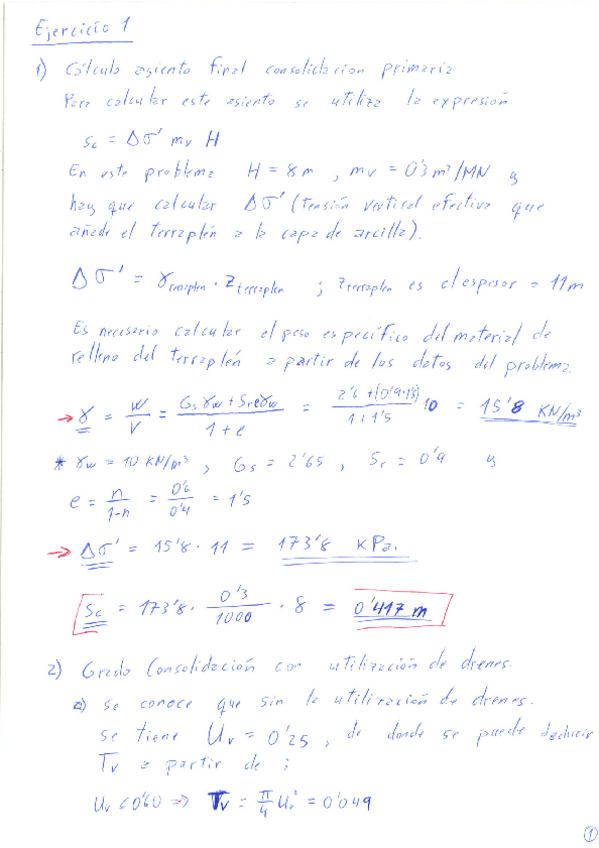 Ejercicio 1
1) Cálculo asiento final consolidacion primaria
Para calcular este asiento se utiliza la expresión
Sc = Δσ' mv H
En este problema H = 8m , mv = 0'3 m²/MN y
hay que calcular Δσ' (tensión vertical efectiva que
añade el terraplén a la capa de arcilla).
Δσ' = γterraplen · Zterraplen ; Zterraplen es el espesor = 11m
Es necesario calcular el peso específico del material de
relleno del terraplén a partir de los datos del problema.
→ γ = W/V = (Gs γw + Sr e γw)/(1 + e) = (2'6 + (0'9·1'5))/(1 + 1'5) 10 = 15'8 KN/m³
* γw = 10 KN/m³ , Gs = 2'65 , Sr = 0'9 y
e = n/(1-n) = 0'6/0'4 = 1'5
→ Δσ' = 15'8 · 11 = 173'8 kPa.
Sc = 173'8 · 0'3/1000 · 8 = 0'417 m
2) Grado Consolidación con utilización de drenes.
a) se conoce que sin la utilización de drenes.
se tiene Uv = 0'25 , de donde se puede deducir
Tv a partir de ;
Uv < 0'60 => Tv = π/4 Uv² = 0'049
1